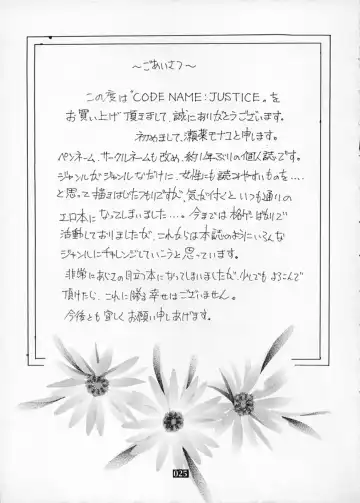 ～ごあいさつ～
この度は“CODE NAME:JUSTICE„を
お買い上げ頂きまして、誠にありがとうございます。
初めまして、瀬葉モナコと申します。
ペンネーム、サークルネームも改め、約1年ぶりの個人誌です。
ジャンルがジャンルなだけに、女性にも読みやすいものを‥‥
と思って描きはじめたつもりですが、気が付くといつも通りの
エロ本になってしまいました‥‥。今までは格ゲーばかりで
活動しておりましたが、これからは本誌のようにいろんな
ジャンルにチャレンジしていこうと思っています。
非常にあらさの目立つ本になってしまいましたが、少しでもよろこんで
頂けたら、これに勝る幸せはございません。
今後とも宜しくお願い申しあげます。
025